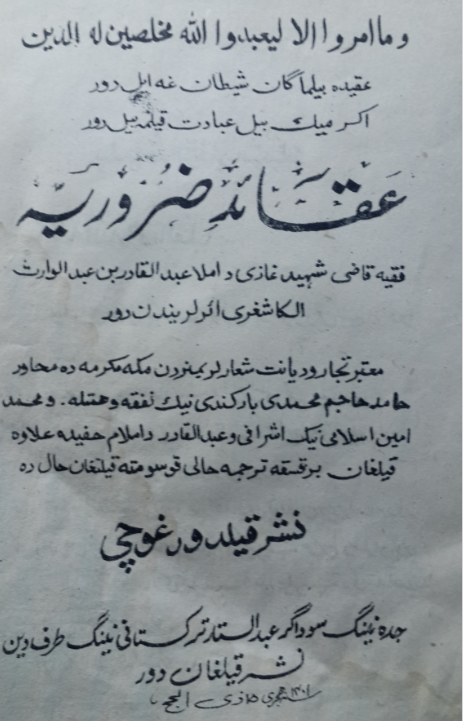 وما امروا الا ليعبدوا الله مخلصين له الدين
عقيده بيلماگان شيطان غه ايل دور
اكر ميك ييل عبادت قيلمه ييل دور
عقائد ضروريه
فقيه قاضى شهيد غازى داملا عبدالقادر بن عبدالوارث
الكاشغرى اثرلريندن دور
معتبر تجار وديانت شعارلريمزدن مكه مكرمه ده مجاور
حامد حاجم محمدى ياركندى نينك نفقه وهمتله. ومحمد
امين اسلامى نينك اشرافى وعبدالقادر داملام حفيده علاوه
قيلغان بر قسقه ترجمه حالى قوسومته قيلغان حال ده
نشر قيلدورغوچى
جده نينگ سوداگر عبدالستار تركستانى نينگ طرفدين
نشر قيلغان دور
١٤٠١ هجرى ١٥ ذى الحجه